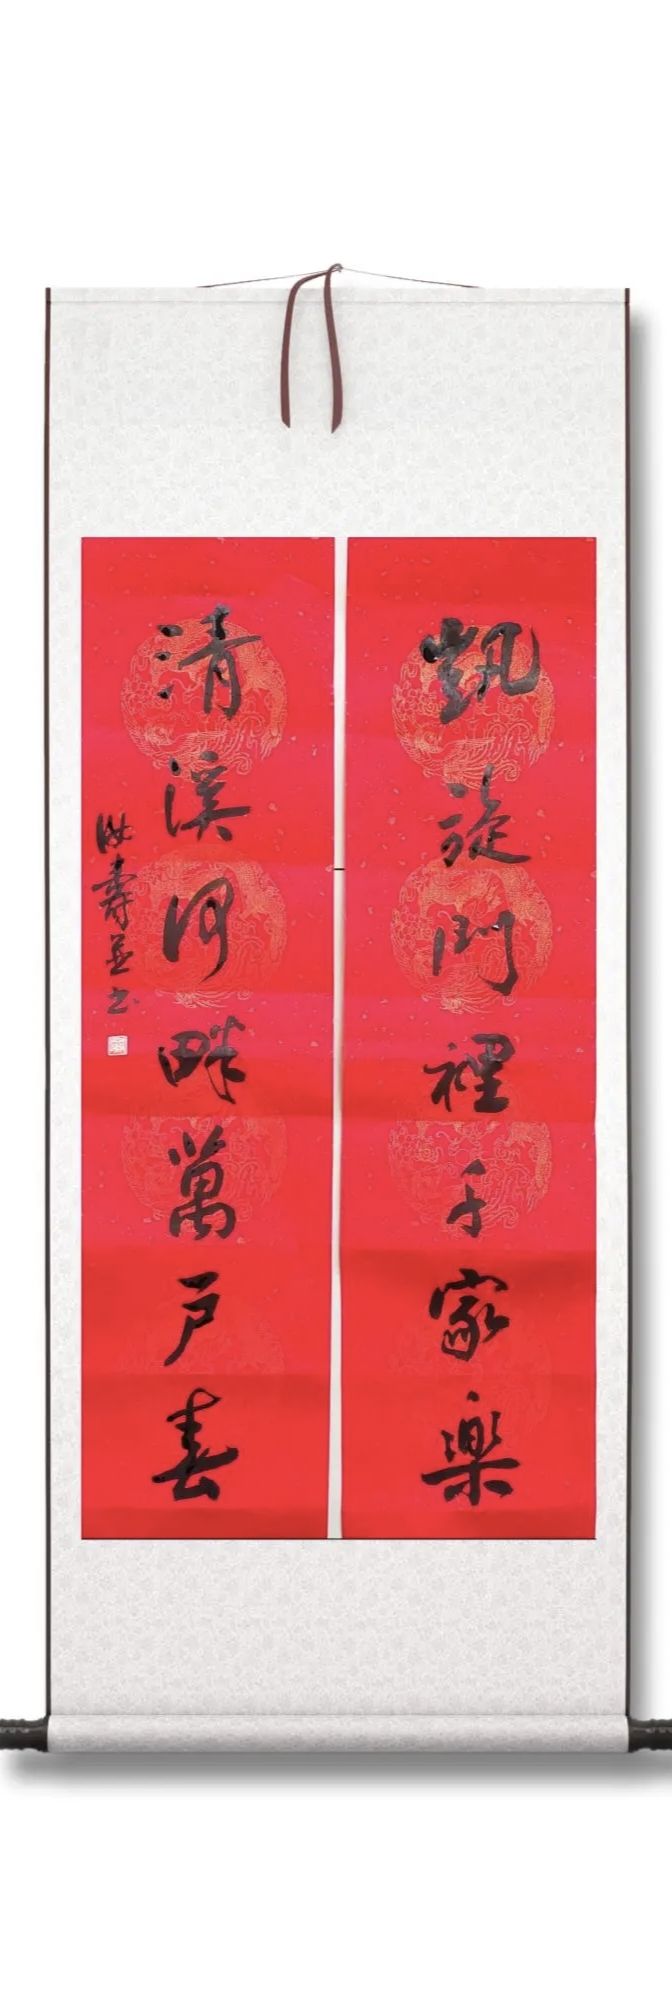 凱旋門裡千家樂
清溪河畔萬戶春
壽並书